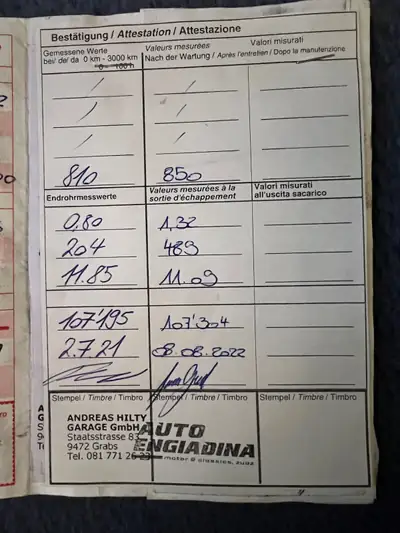 Bestätigung / Attestation / Attestazione
Gemessene Werte
bei/ de/ da 0 km - 3000 km
0 - 100 h
Valeurs mesurées
Valori misurati
Nach der Wartung / Après l'entretien / Dopo la manutenzione
/ /
/ /
/ /
810 850
Endrohrmesswerte
Valeurs mesurées à la
sortie d'échappement
Valori misurati
all'uscita sacarico
0,80 1,32
204 489
11.85 11.09
107'195 107'304
2.7.21 08.08.2022
Stempel / Timbre / Timbro
Stempel / Timbre / Timbro
Stempel / Timbre / Timbro
ANDREAS HILTY
GARAGE GmbH
Staatsstrasse 83
9472 Grabs
Tel. 081 771 26
AUTO
ENGIADINA
motor & classics, zuoz